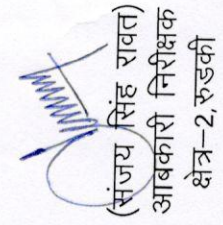 (संजय सिंह रावत)
आबकारी निरीक्षक
क्षेत्र–2, रुडकी